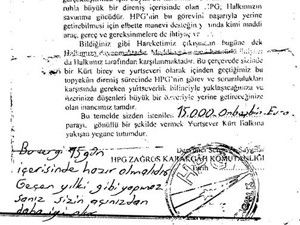 ruhla büyük bir direniş içerisinde olan HPG, Halkımızın
savunma gücüdür. HPG'nin bu görevini başarıyla yerine
getirebilmesi için elbette manevi desteğin yanında kimi maddi
araç, gereç ve gereksinmelere de ihtiyaç
Bildiğiniz gibi Hareketimiz çıkışından bugüne dek
da Halkımız tarafından karşılanmaktadır. Bu çerçevede sizinde
bir Kürt birey ve yurtseveri olarak içinden geçtiğimiz bu
topyekün direniş sürecinde HPG'nin görev ve sorumlulukları
karşısında gereken yurtseverlik bilinciyle yaklaşacağınızı ve
üzerinize düşenleri büyük bir özveriyle yerine getireceğinize
olan inancımız tamdır.
Bu temelde sizden istenilen 15.000 Onbeşbin Euro
parayı, gönüllü bir şekilde vermek Yurtsever Kürt Halkına
yakışan yegane tutumdur.
Bu vergi 15 gün
içerisinde hazır olmalıdır.
Geçen yılki gibi yapmaz
sanız sizin açınızdan
daha iyi olur
Devrimci Selam ve Saygılar
HPG ZAGROS KARARGAH KOMUTANLIĞI
Tarih